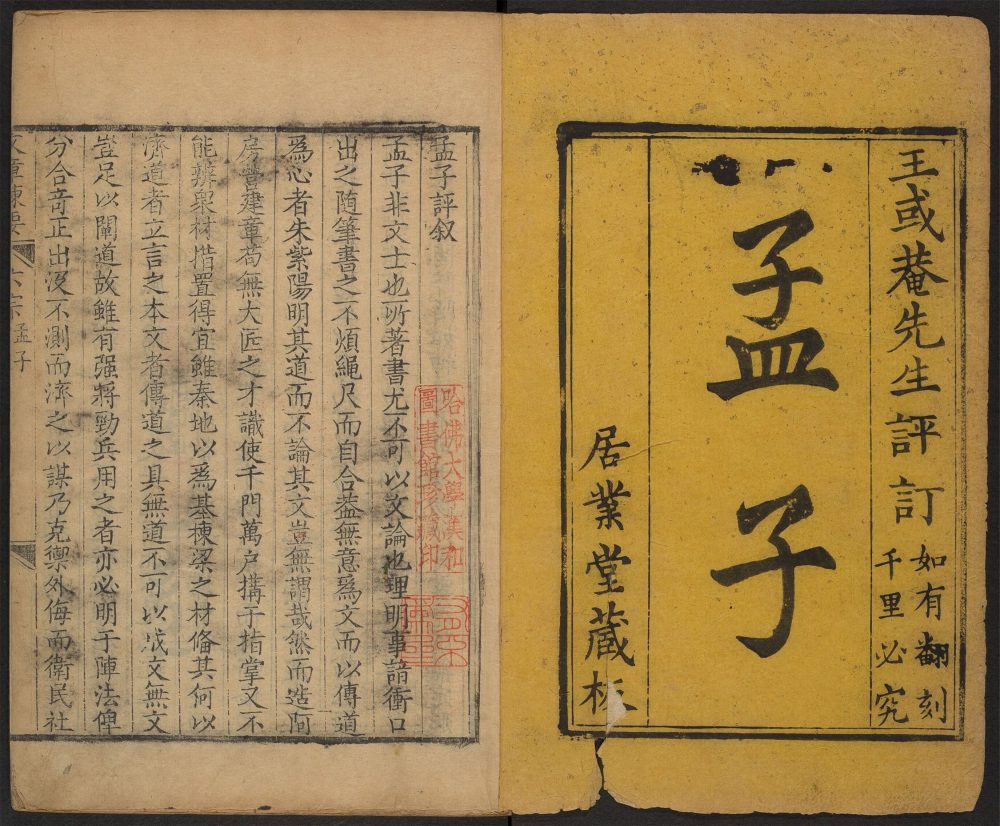 王或菴先生評訂
如有翻刻
千里必究
孟子
居業堂藏板
孟子評叙
孟子非文士也所著書尤不可以文論也理明事諳衝口
出之随筆書之不煩繩尺而自合葢無意爲文而以傳道
爲心者朱紫陽明其道而不論其文豈無謂哉然而造阿
房營建章苟無大匠之才識使千門萬户搆于指掌又不
能辨衆材措置得宜雖秦地以爲基棟梁之材俻其何以
濟道者立言之本文者傳道之具無道不可以成文無文
豈足以闡道故雖有强將勁兵用之者亦必明于陣法俾
分合奇正出没不測而濟之以謀乃克禦外侮而衛民社
文章練要
六宗孟子
哈佛大學漢和
圖書館珍藏印